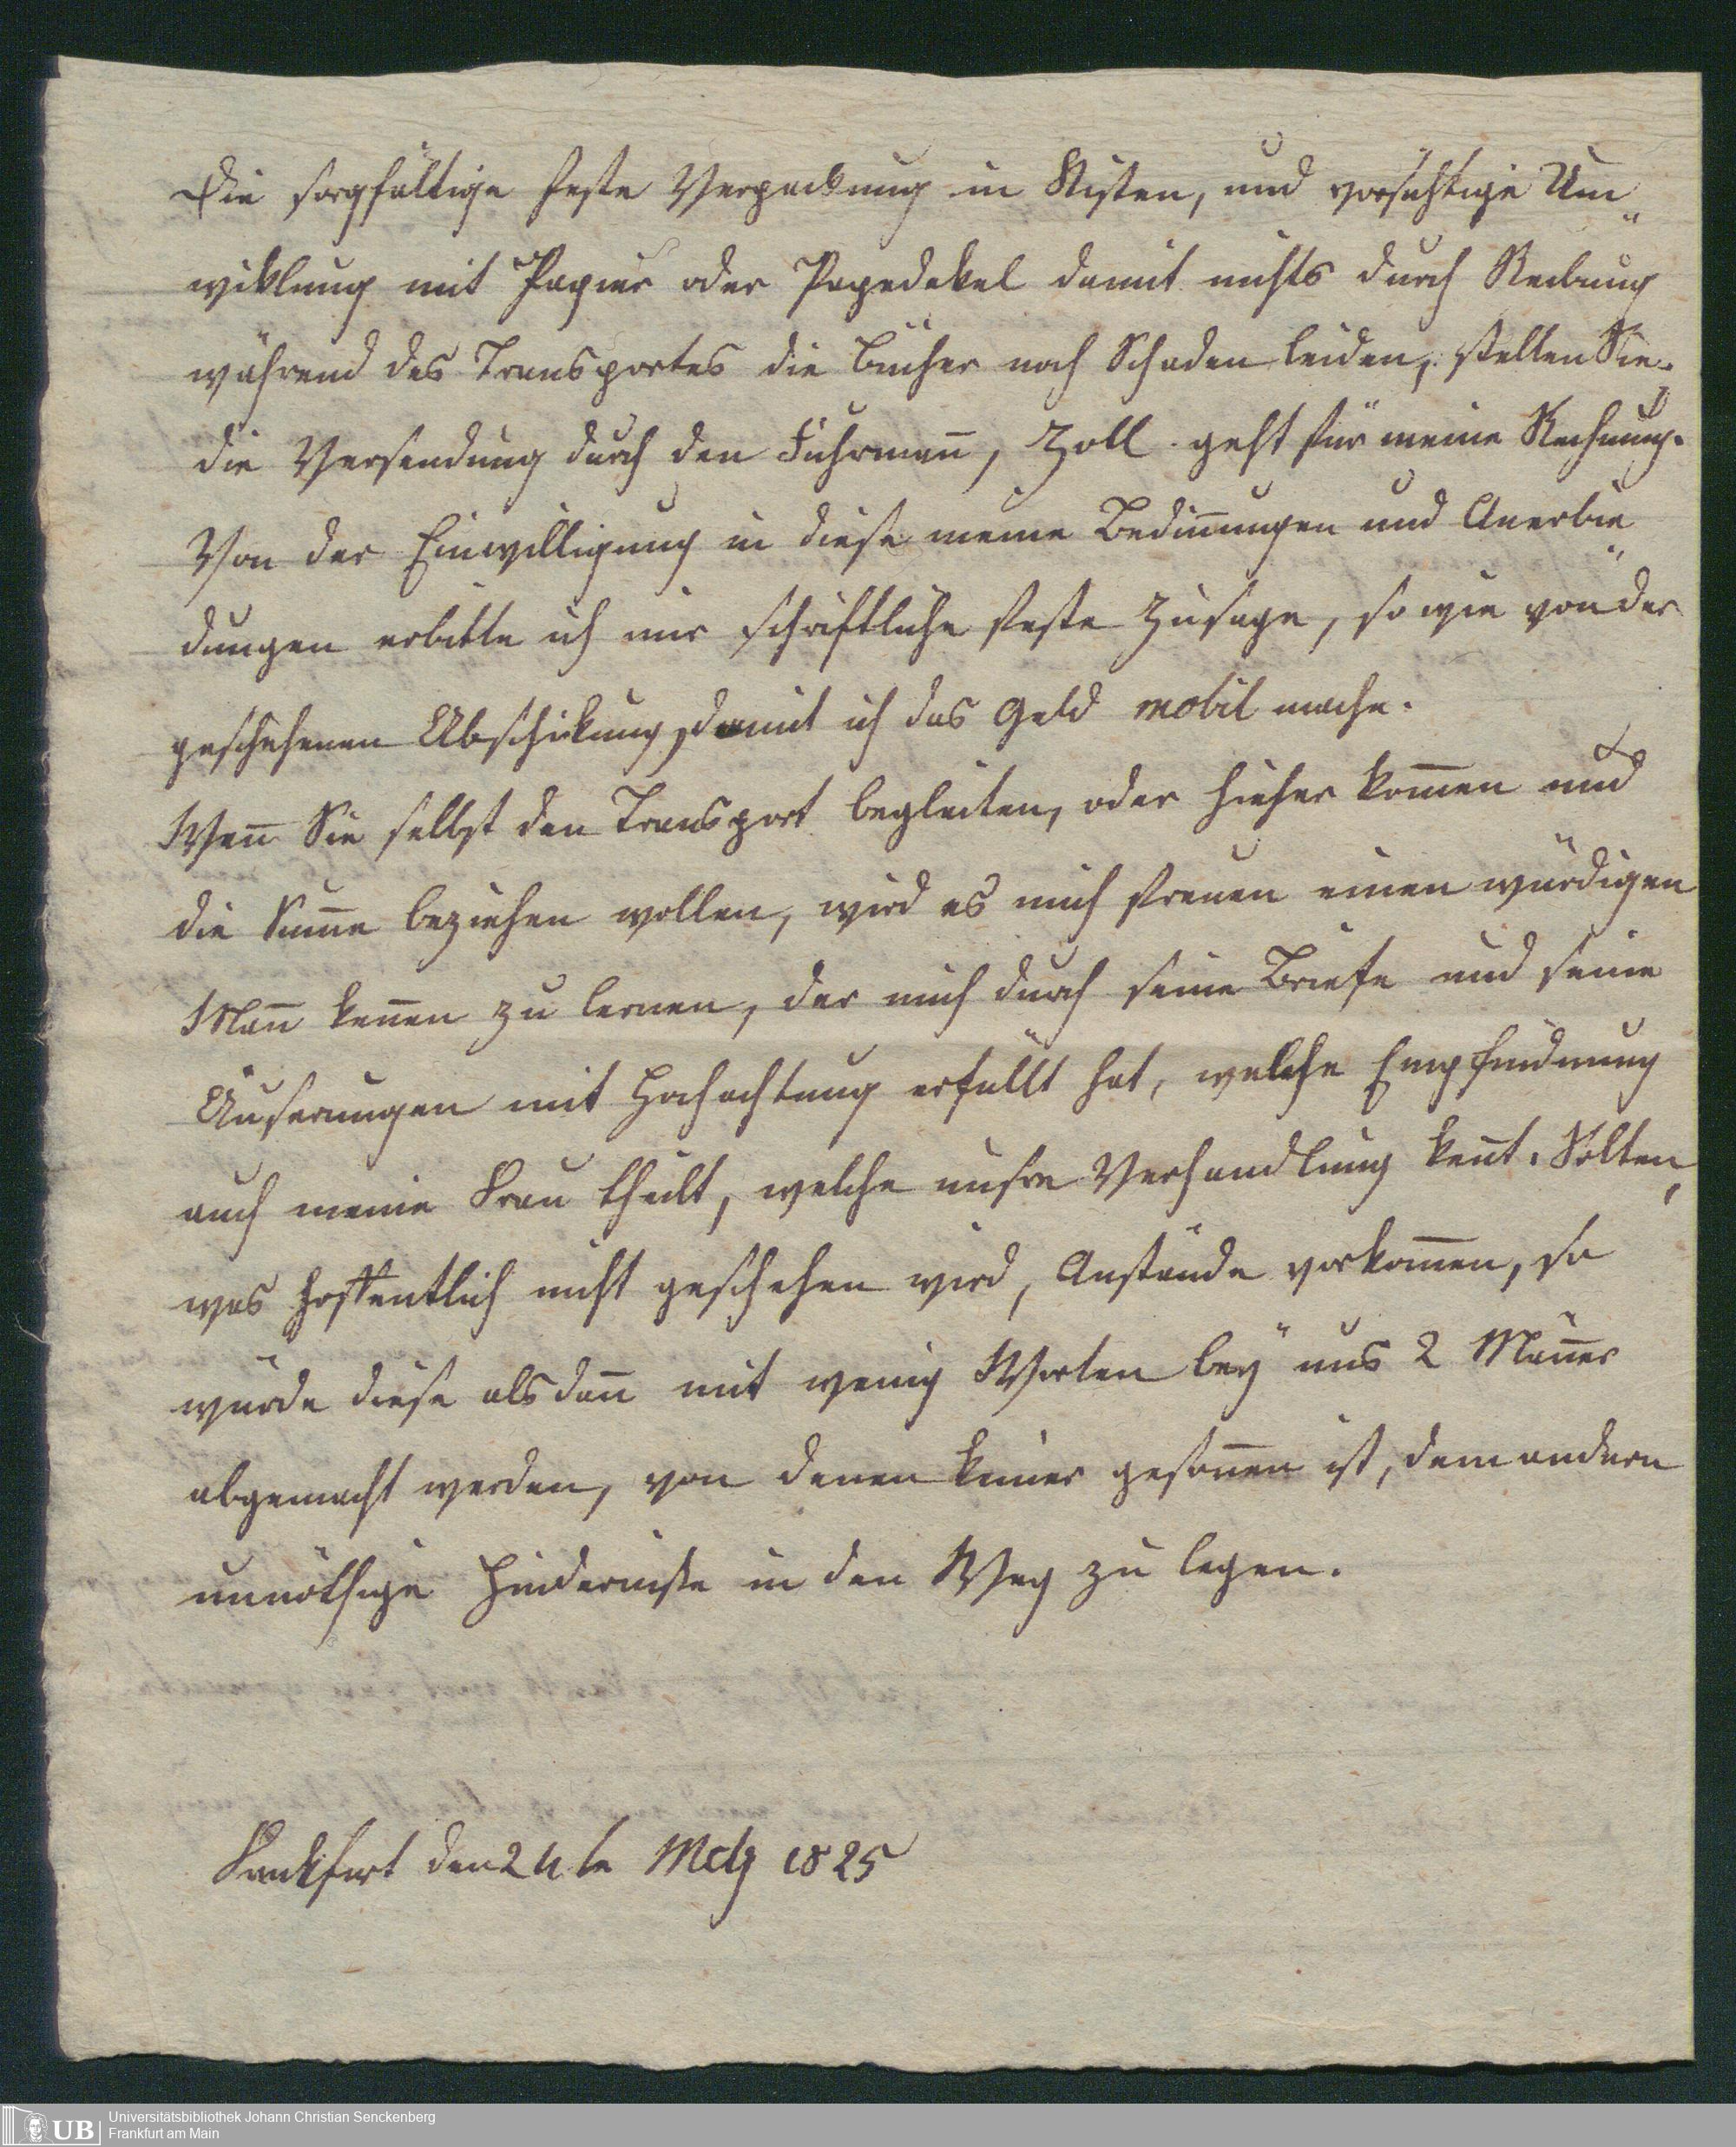 Die sorgfältige feste Verpackung in Kisten, und vorsichtige Um„
wiklung mit Papier oder Papedekel damit nichts durch Reibung
während des Transportes die Bücher noch Schaden leiden, stellen Sie.
die Versendung durch den Fuhrman̅, Zoll geht für meine Rechnung.
Von der Einwilligung in diese meine Bedin̅ungen und Anerbie„
dungen erbitte ich mir schriftliche feste Zusage, so wie von der
geschehenen Abschikung, damit ich das Geld mobil mache.
Wen̅ Sie selbst den Transport begleiten, oder hieher kom̅en und
die Sum̅e beziehen wollen, wird es mich freuen einen würdigen
Man̅ ken̅en zu lernen, der mich durch seine Briefe und seine
Äuserungen mit Hochachtung erfüllt hat, welche Empfindnung
auch meine Frau theilt, welche unsre Verhandlung ken̅t. Solten,
was hoffentlich nicht geschehen wird, Anstände vorkom̅en, so
würde diese als dan̅ mit wenig Worten bey uns 2 Män̅er
abgemacht werden, von denen keiner geson̅en ist, dem andern
unnöthige Hinderniße in den Weg zu legen.
Frankfurt den 24te Mrz 1825
Universitätsbibliothek Johann Christian Senckenberg
Frankfurt am Main
UB